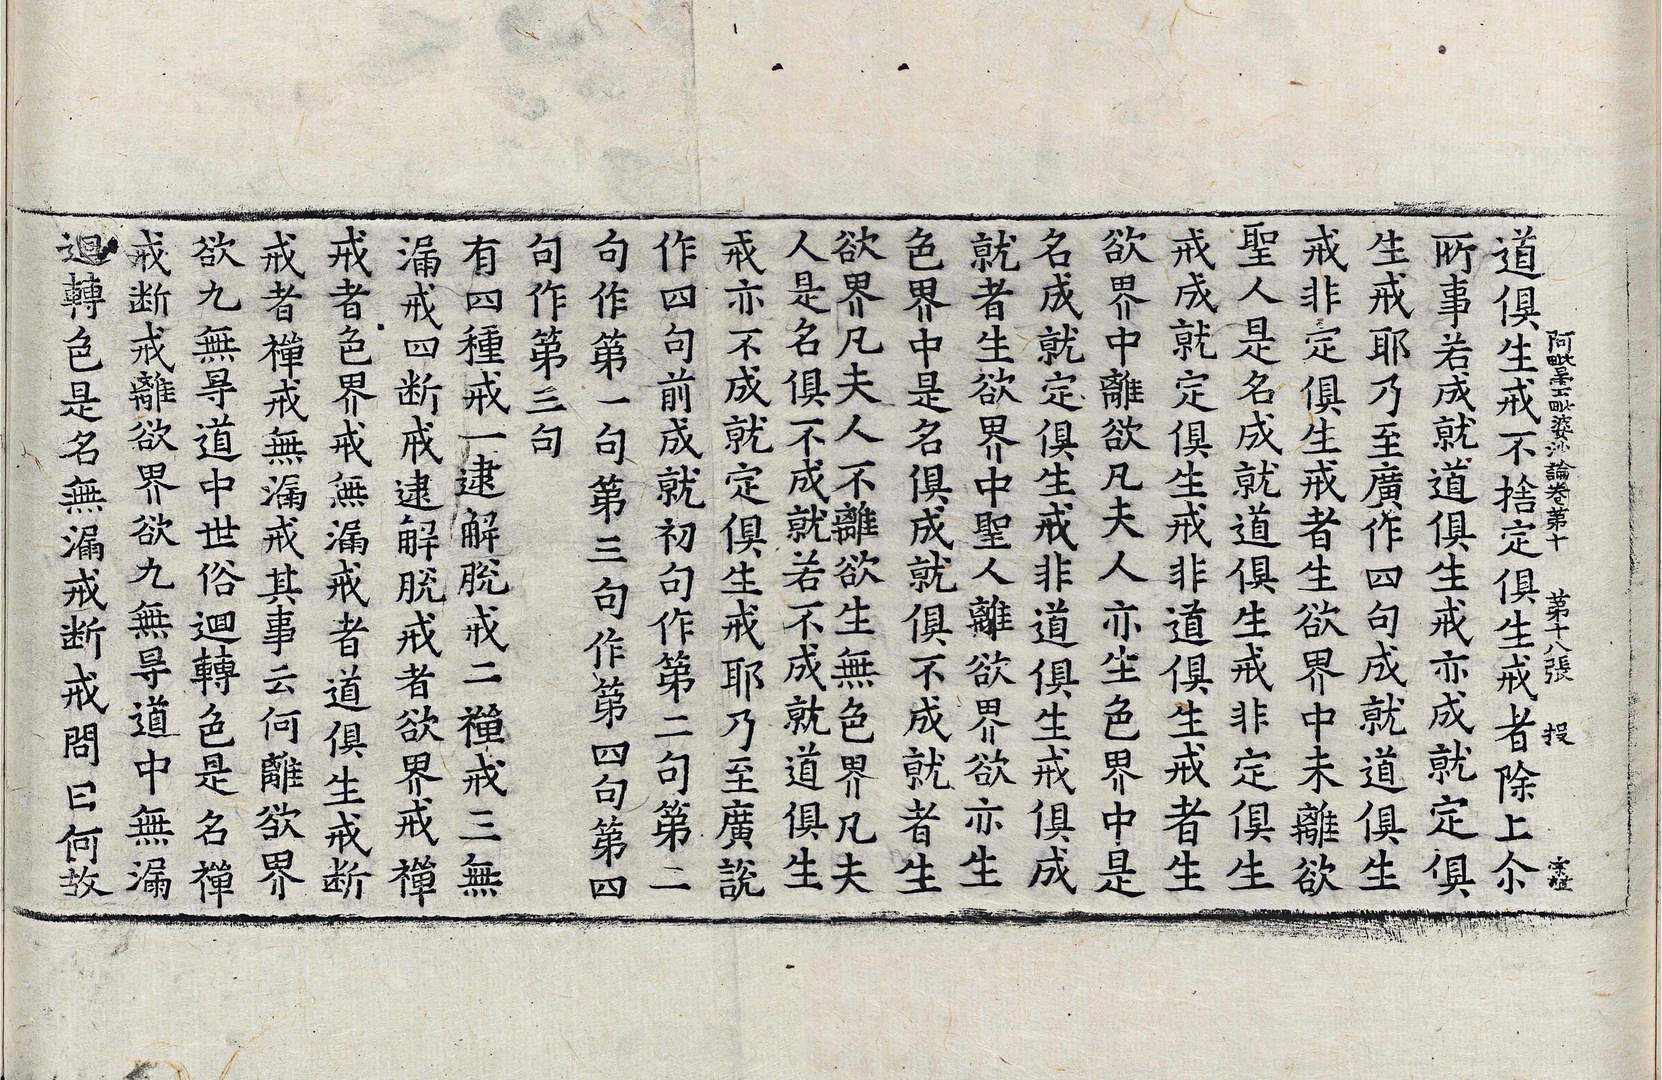 阿毗曇毗婆沙論卷第十　第十八張　投
道俱生戒不捨定俱生戒者除上尒
所事若成就道俱生戒亦成就定俱
生戒耶乃至廣作四句成就道俱生
戒非定俱生戒者生欲界中未離欲
聖人是名成就道俱生戒非定俱生
戒成就定俱生戒非道俱生戒者生
欲界中離欲凡夫人亦生色界中是
名成就定俱生戒非道俱生戒俱成
就者生欲界中聖人離欲界欲亦生
色界中是名俱成就俱不成就者生
欲界凡夫人不離欲生無色界凡夫
人是名俱不成就若不成就道俱生
戒亦不成就定俱生戒耶乃至廣說
作四句前成就初句作第二句第二
句作第一句第三句作第四句第四
句作第三句
有四種戒一逮解脫戒二禪戒三無
漏戒四断戒逮解脫戒者欲界戒禪
戒者色界戒無漏戒者道俱生戒断
戒者禪戒無漏戒其事云何離欲界
欲九無㝵道中世俗迴轉色是名禪
戒断戒離欲界欲九無㝵道中無漏
迴轉色是名無漏戒断戒問曰何故